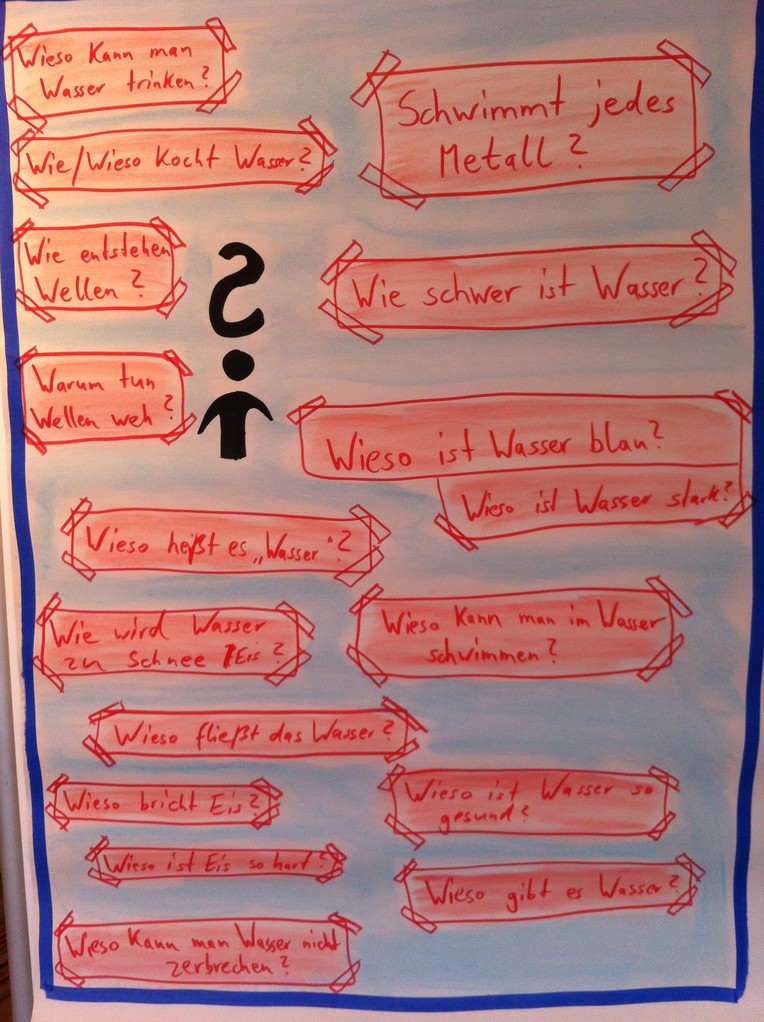 Wieso kann man
Wasser trinken?
Wie/Wieso kocht Wasser?
Wie entstehen
Wellen?
Warum tun
Wellen weh?
Schwimmt jedes
Metall?
Wie schwer ist Wasser?
Wieso ist Wasser blau?
Wieso ist Wasser stark?
Wieso heißt es „Wasser“?
Wie wird Wasser
zu Schnee / Eis?
Wieso kann man im Wasser
schwimmen?
Wieso fließt das Wasser?
Wieso bricht Eis?
Wieso ist Wasser so
gesund?
Wieso ist Eis so hart?
Wieso gibt es Wasser?
Wieso kann man Wasser nicht
zerbrechen?